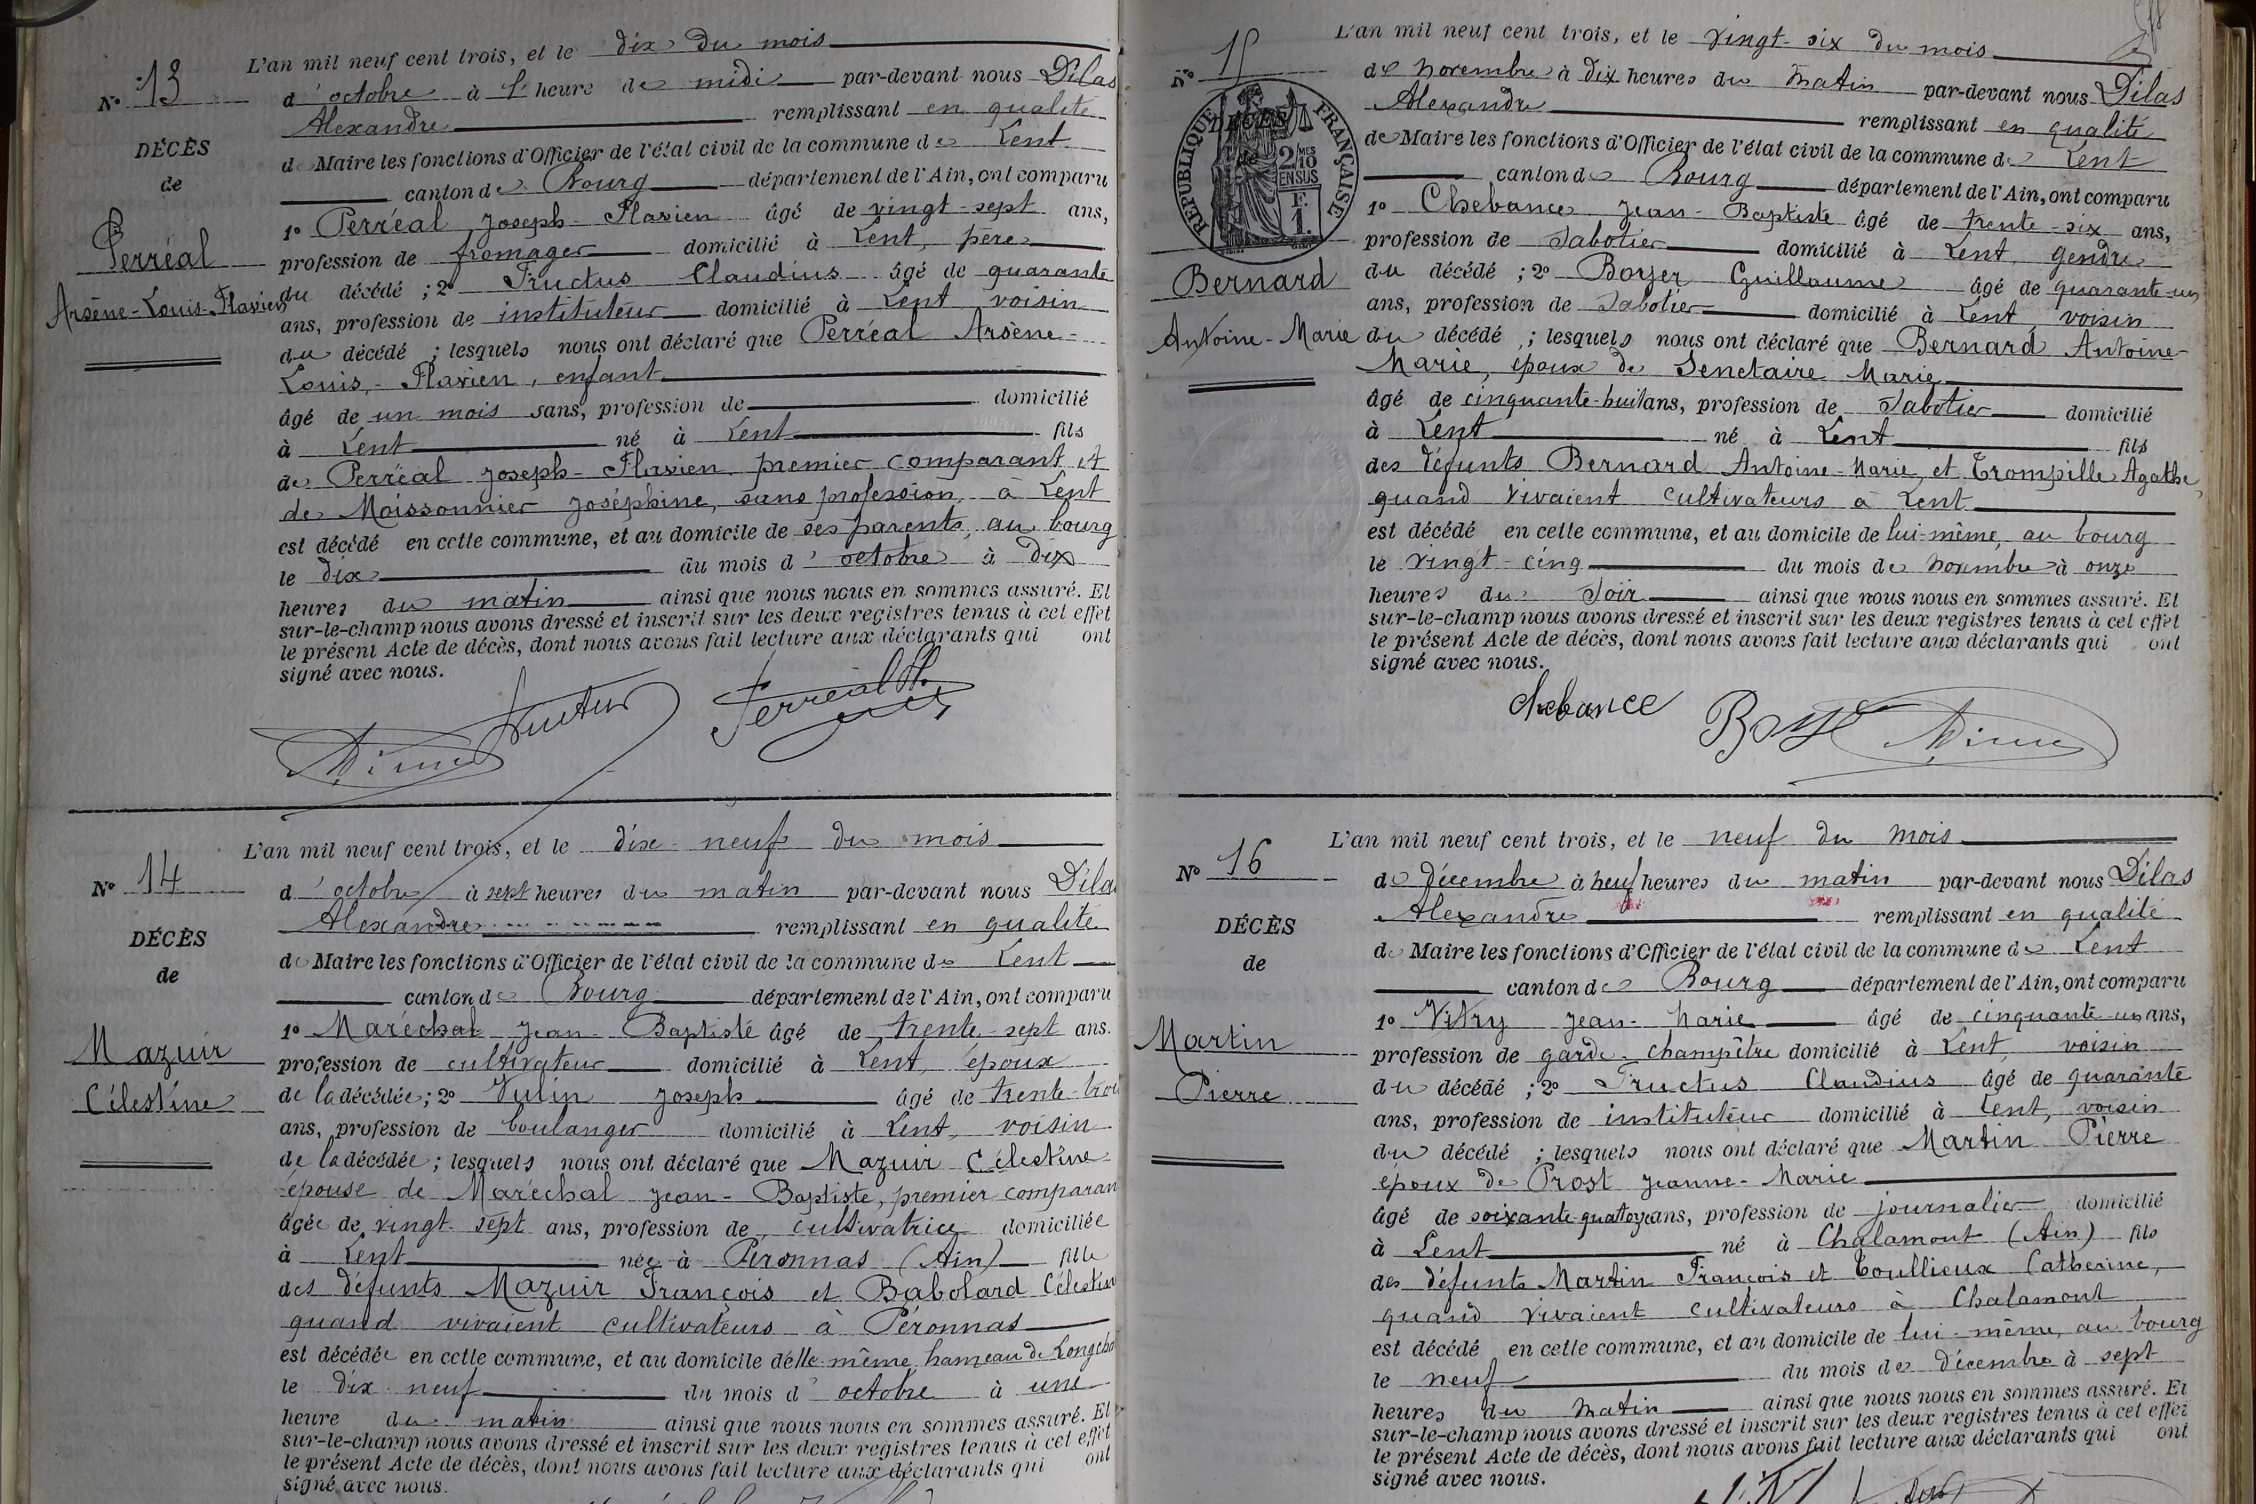 L'an mil neuf cent trois, et le dix du mois
N° 13
d'octobre à l'heure de midi par-devant nous Dilas
Alexandre remplissant en qualité
DÉCÈS
de Maire les fonctions d'Officier de l'état civil de la commune de Lent
de
canton de Bourg département de l'Ain, ont comparu
1° Perréal Joseph-Flavien âgé de vingt-sept ans,
Perréal
profession de fromager domicilié à Lent, père
du décédé ; 2° Fructus Claudius âgé de quarante
Arsène-Louis-Flavien
ans, profession de instituteur domicilié à Lent voisin
du décédé ; lesquels nous ont déclaré que Perréal Arsène-
Louis-Flavien, enfant
âgé de un mois sans, profession de domicilié
à Lent né à Lent fils
de Perréal Joseph-Flavien premier comparant et
de Moissonnier Joséphine, sans profession, à Lent
est décédé en cette commune, et au domicile de ses parents, au bourg
le dix du mois d'octobre à dix
heures du matin ainsi que nous nous en sommes assuré. Et
sur-le-champ nous avons dressé et inscrit sur les deux registres tenus à cet effet
le présent Acte de décès, dont nous avons fait lecture aux déclarants qui ont
signé avec nous.
Fructus
Perréal
L'an mil neuf cent trois, et le dix-neuf du mois
N° 14
d'octobre à sept heures du matin par-devant nous Dilas
Alexandre remplissant en qualité
DÉCÈS
de Maire les fonctions d'Officier de l'état civil de la commune de Lent
de
canton de Bourg département de l'Ain, ont comparu
1° Maréchal Jean-Baptiste âgé de trente-sept ans.
Mazuir
profession de cultivateur domicilié à Lent, époux
Célestine
de la décédée ; 2° Vulin Joseph âgé de trente-trois
ans, profession de boulanger domicilié à Lent, voisin
de la décédée ; lesquels nous ont déclaré que Mazuir Célestine
épouse de Maréchal Jean-Baptiste, premier comparan
âgée de vingt-sept ans, profession de cultivatrice domiciliée
à Lent née à Péronnas (Ain) fille
des défunts Mazuir François et Babolard Célestine
quand vivaient cultivateurs à Péronnas
est décédée en cette commune, et au domicile d'elle-même, hameau de Longcha
le dix-neuf du mois d'octobre à une
heure du matin ainsi que nous nous en sommes assuré. Et
sur-le-champ nous avons dressé et inscrit sur les deux registres tenus à cet effet
le présent Acte de décès, dont nous avons fait lecture aux déclarants qui ont
signé avec nous.
L'an mil neuf cent trois, et le vingt-six du mois
N° 15
de novembre à dix heures du matin par-devant nous Dilas
Alexandre remplissant en qualité
DÉCÈS
de
RÉPUBLIQUE FRANÇAISE
2/10 MES
EN SUS
F.
1.
de Maire les fonctions d'Officier de l'état civil de la commune de Lent
canton de Bourg département de l'Ain, ont comparu
1° Chebance Jean-Baptiste âgé de trente-six ans,
profession de sabotier domicilié à Lent, gendre
Bernard
du décédé ; 2° Boyer Guillaume âgé de quarante-un
ans, profession de sabotier domicilié à Lent, voisin
Antoine-Marie
du décédé ; lesquels nous ont déclaré que Bernard Antoine-
Marie, époux de Senetaire Marie
âgé de cinquante-huit ans, profession de sabotier domicilié
à Lent né à Lent fils
des défunts Bernard Antoine-Marie, et Trompille Agathe,
quand vivaient cultivateurs à Lent
est décédé en cette commune, et au domicile de lui-même, au bourg
le vingt-cinq du mois de novembre à onze
heures du soir ainsi que nous nous en sommes assuré. Et
sur-le-champ nous avons dressé et inscrit sur les deux registres tenus à cet effet
le présent Acte de décès, dont nous avons fait lecture aux déclarants qui ont
signé avec nous.
Chebance
L'an mil neuf cent trois, et le neuf du mois
N° 16
de décembre à neuf heures du matin par-devant nous Dilas
Alexandre remplissant en qualité
DÉCÈS
de Maire les fonctions d'Officier de l'état civil de la commune de Lent
de
canton de Bourg département de l'Ain, ont comparu
1° Vitry Jean-Marie âgé de cinquante-un ans,
Martin
profession de garde-champêtre domicilié à Lent, voisin
Pierre
du décédé ; 2° Fructus Claudius âgé de quarante
ans, profession de instituteur domicilié à Lent, voisin
du décédé ; lesquels nous ont déclaré que Martin Pierre
époux de Prost Jeanne-Marie
âgé de soixante-quatorze ans, profession de journalier domicilié
à Lent né à Chalamont (Ain) fils
des défunts Martin François et Toullieux Catherine,
quand vivaient cultivateurs à Chalamont
est décédé en cette commune, et au domicile de lui-même, au bourg
le neuf du mois de décembre à sept
heures du matin ainsi que nous nous en sommes assuré. Et
sur-le-champ nous avons dressé et inscrit sur les deux registres tenus à cet effet
le présent Acte de décès, dont nous avons fait lecture aux déclarants qui ont
signé avec nous.